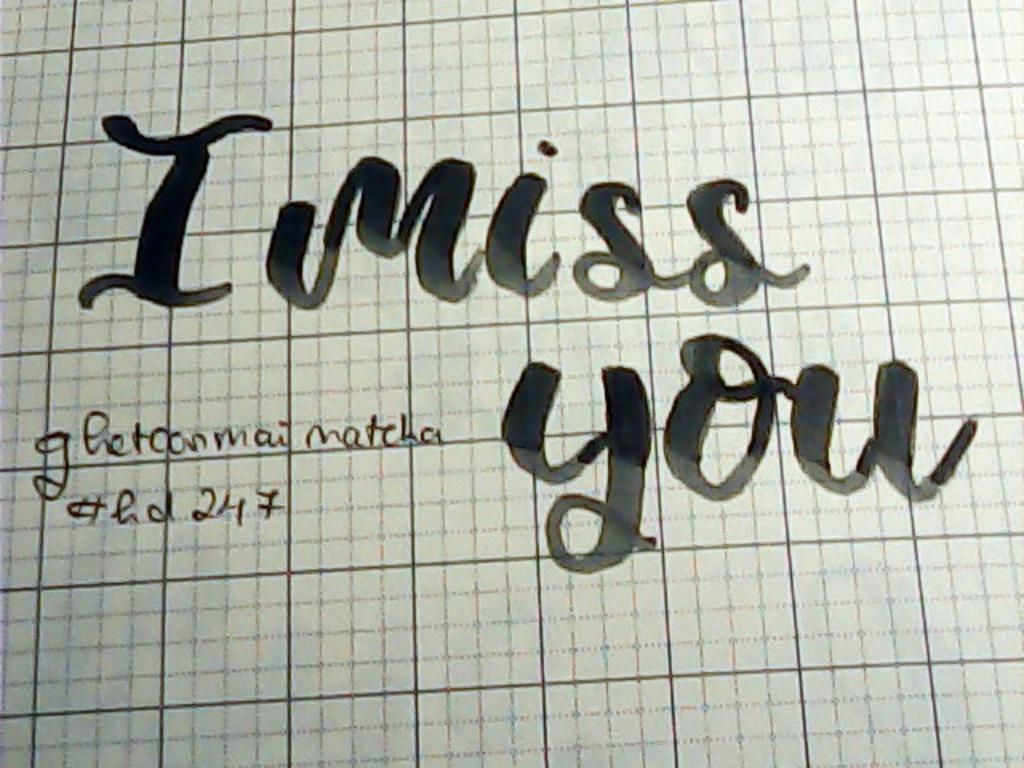 I miss
you
ghetconmai matcha
#hd 247